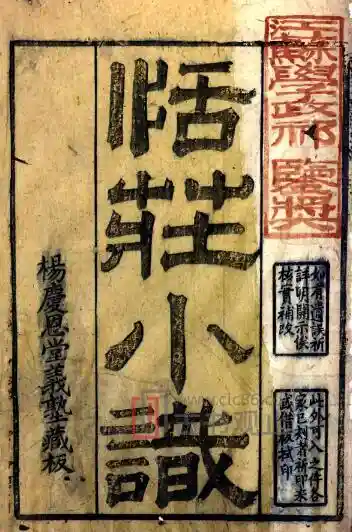 江蘇學政祁鑒獎
如有遺誤祈
詳明開示俟
核實補改
此外可入之件各
家已刻者祈印來
或借板拭印
恬莊小識
楊慶恩堂義塾藏板